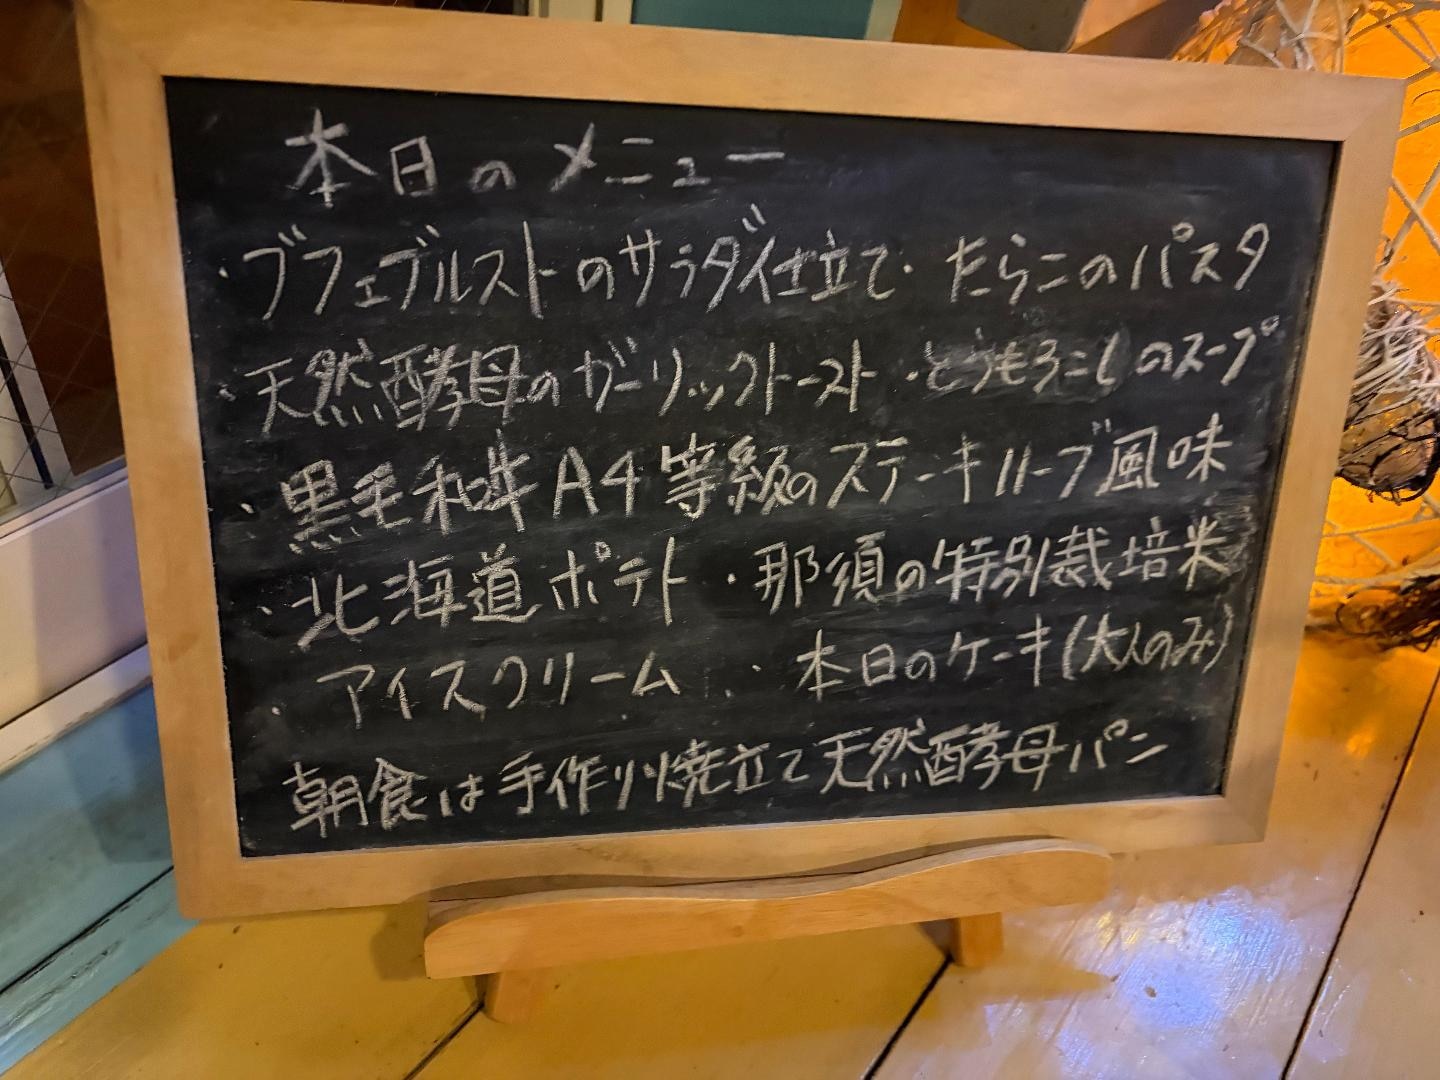 本日のメニュー
・ブフェブルストのサラダ仕立て・たらこのパスタ
・天然酵母のガーリックトースト・とうもろこしのスープ
・黒毛和牛A4等級のステーキハーブ風味
・北海道ポテト・那須の特別栽培米
・アイスクリーム・本日のケーキ(大人のみ)
朝食は手作り焼立て天然酵母パン